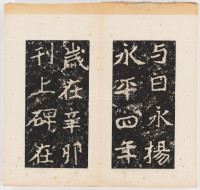 与日永揚
永平四年
歲在辛卯
刊上碑在